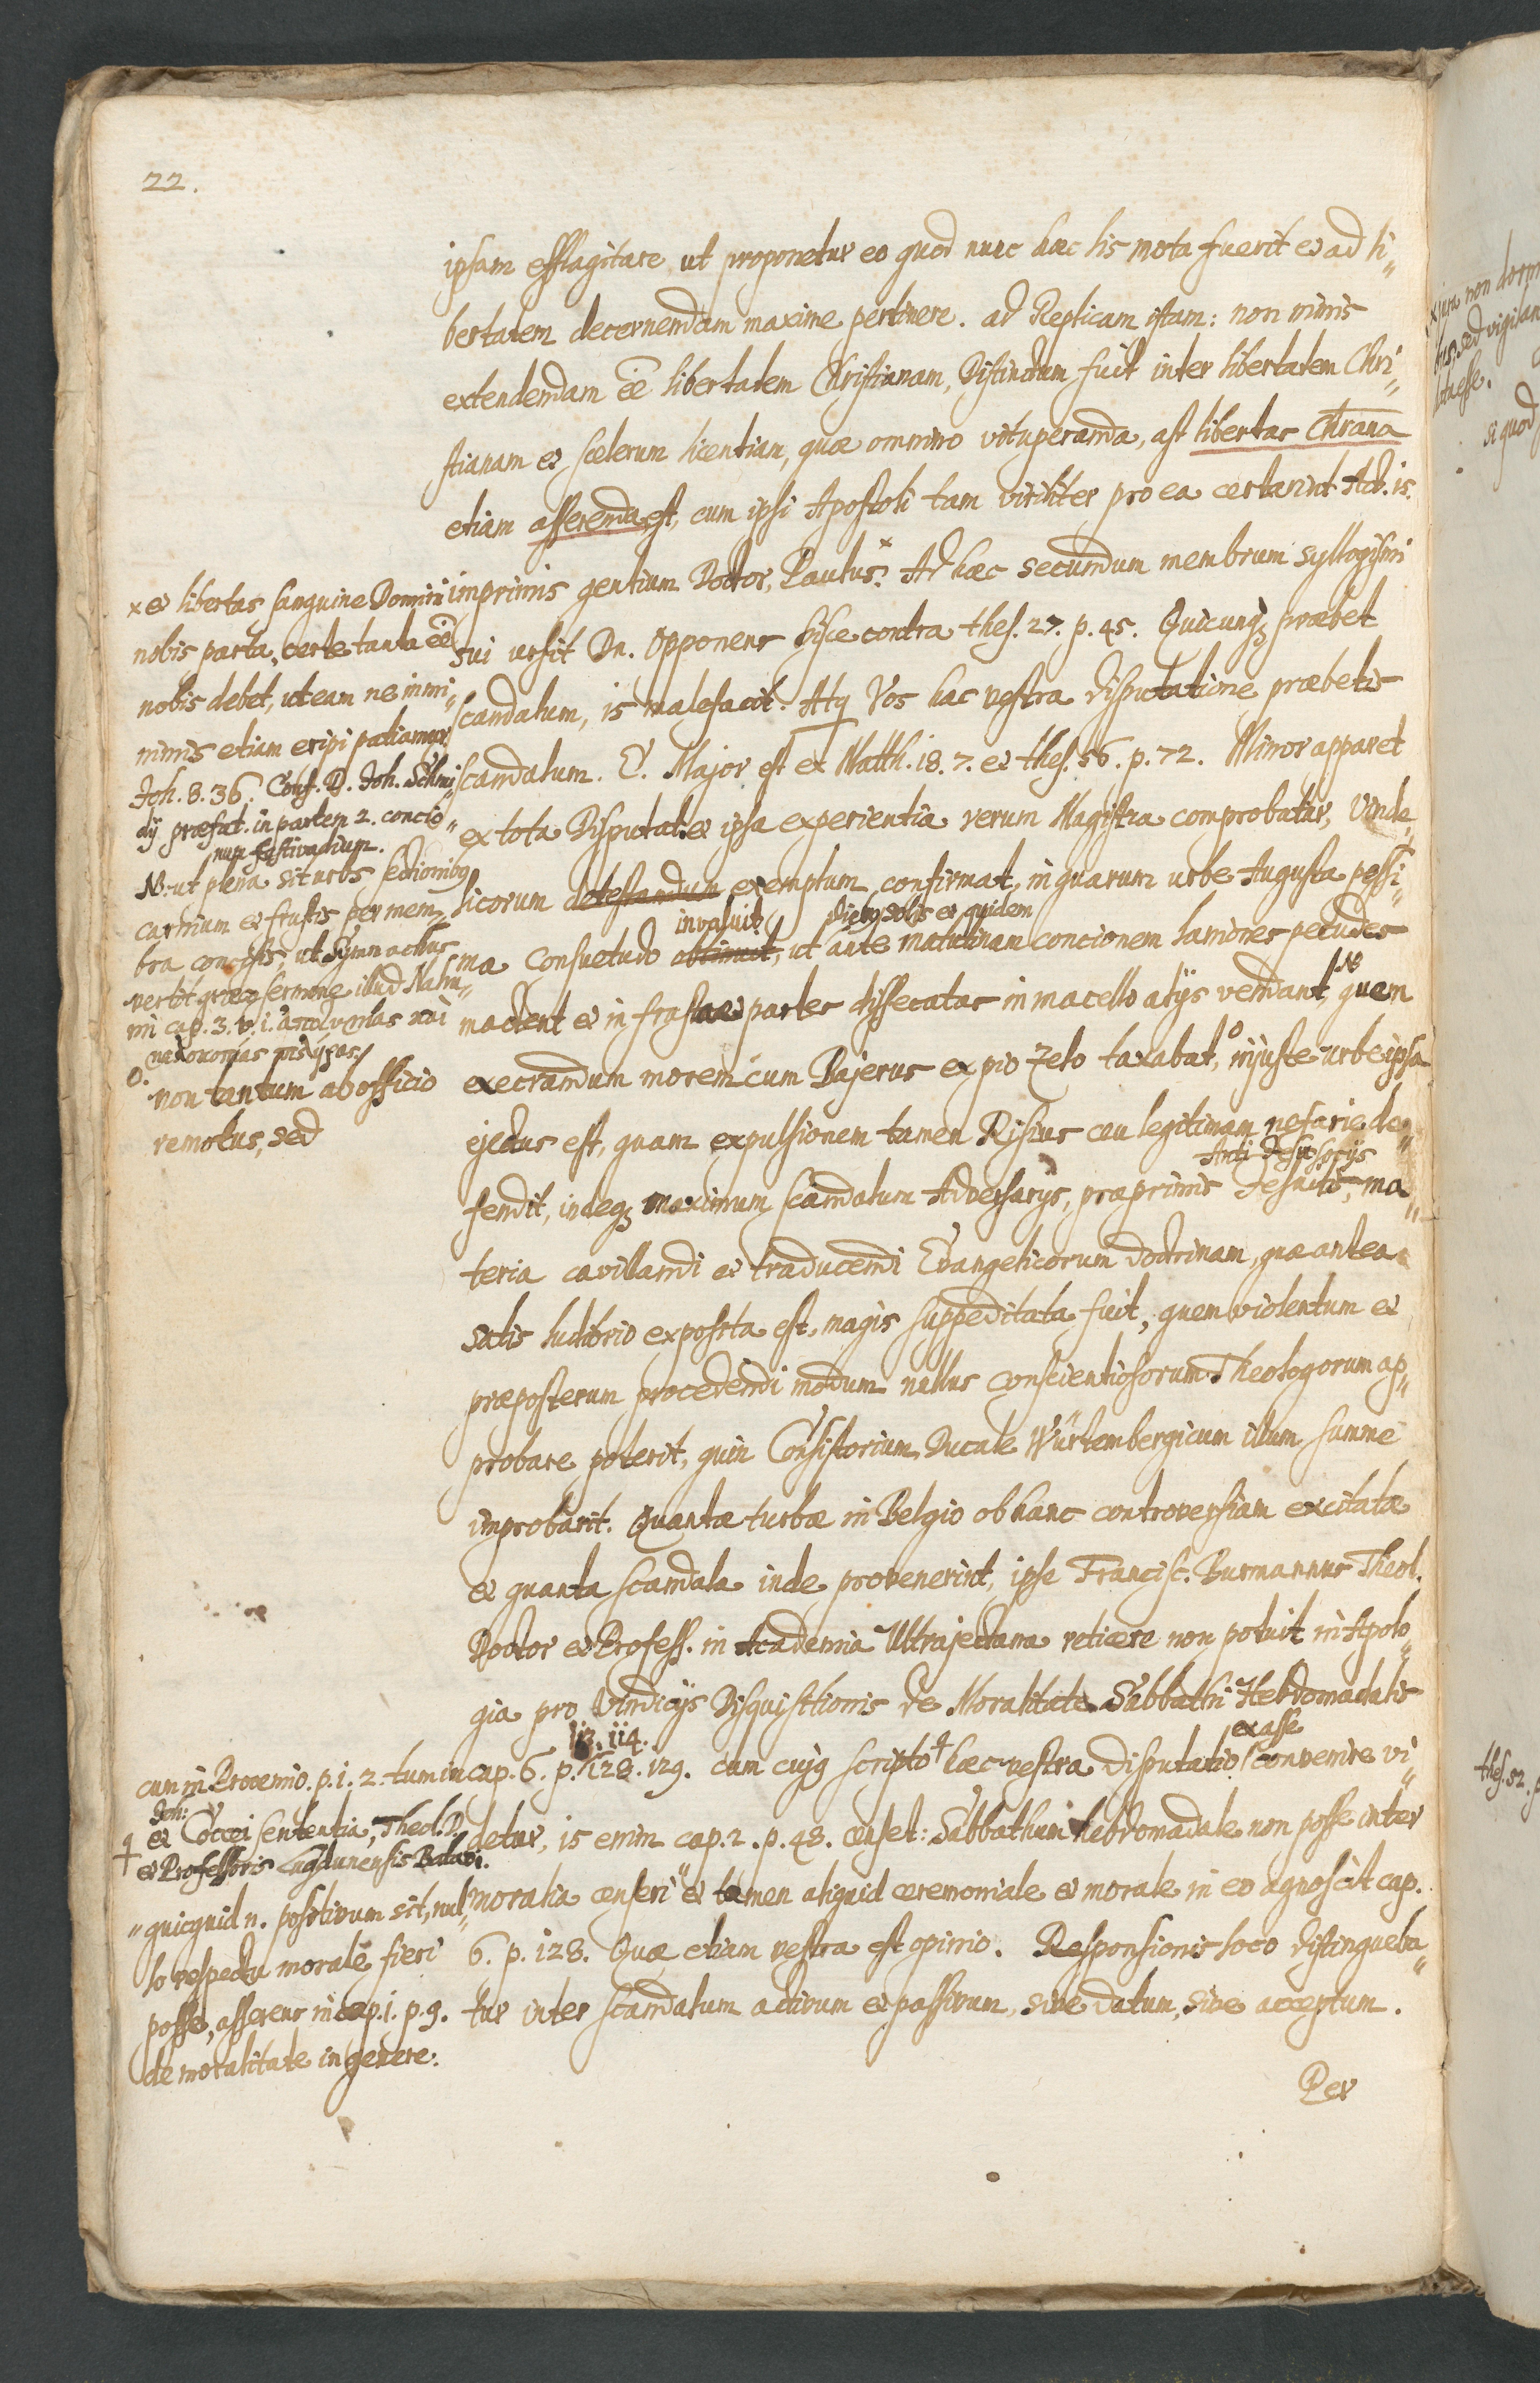 22.
ipsam efflagitare ut proponetur eo quod nunc hæc lis mota fuerit et ad li„
bertatem decernendam maxime pertinere. ad Replicam istam: non nimis
extendendam ēe libertatem Christianam, Distinctum fuit inter libertatem Chri„
stianam et scelerum licentiam, quæ omnino vituperanda, ast libertas Chrāna
etiam asserenda est, cum ipsi Apostoli tam viriliter pro ea certarint Act. 15.
imprimis gentium Doctor, Paulus.× Ad hæc secundum membrum syllogismi
sui ursit Dn. Opponens hisce contra thes. 27. p. 45. Quicunq; præbet
scandalum, is malefacit. Atq Vos hac vestra disputatione præbetis
scandalum. E. Major est ex Matth. 18. 7. et thes. 56. p. 72. Minor apparet
ex tota Disputat. et ipsa experientia rerum Magistra comprobatur, Vinde„
licorum detestandum exemplum confirmat, in quarum urbe Augusta pessi„
invaluit dieb9 solis et quidem
ma consuetudo obtinuit, ut ante matutinam concionem laniones pecudes
mactent et in frusta et partes dissecatas in macello alijs vendant, NB quem
execrandum morem cum Bajerus ex pio zelo taxabat, o injuste urbe ipsa
ejectus est, quam expulsionem tamen Risius ceu legitimam nefarie de„
Anti
fendit, indeq; maximum scandalum Adversarijs, præprimis Jesuitis, ma„
teria cavillandi et traducendi Evangelicorum doctrinam, quæ antea
satis ludibrio exposita est, magis suppeditata fuit, quem violentum et
præposterum procedendi modum nullus conscientiosorum Theologorum ap„
probare poterit, quin Consistorium Ducale Würtembergicum illum summe
improbarit. Quantæ turbæ in Belgio ob hanc controversiam excitatæ
et quanta scandala inde provenerint, ipse Francisc. Burmannus Theol.
Doctor et Profess. in Academia Ultrajectana reticere non potuit in Apolo„
gia pro Vindicijs Disquisitionis de Moralitate Sabbathi Hebdomadalis
113. 114. ex asse
cap. 6. p. 128. 129. cum cujq scripto hæc vestra disputatio convenire vi„
detur, is enim cap. 2. p. 48. censet: Sabbathum hebdomadale non posse inter
moralia censeri" et tamen aliquid ceremoniale et morale in eo agnoscit cap.
6. p. 128. Quæ etiam vestra est opinio. Responsionis loco distingueba„
tur inter scandalum activum et passivum, sive datum, sive acceptum.
Per
× et libertas sanguine Domini
nobis parta, certe tanta ēe
nobis debet, ut eam ne in mi„
nimis etiam eripi patiamur
Joh. 8. 36. Conf. D. Joh. Schmi„
dij præfat. in partem 2. concio„
num festivalium.
NB. ut plena sit urbs sectionib9
carnium et frustis per mem„
bra concisis, ut Symmachus
vertit græco sermone illud Nahu„
mi cap. 3. v. 1.
o.
non tantum ab officio
remotus, sed
cum in Prooemio. p. 1. 2. tum in
Joh:
et Coccei sententia, Theol. D.
et Professoris Lugdunensis Batavi.
„quicquid n. positivum sit, nul„
lo respectu morale fieri
posse, asserens in cap. 1. p. 9.
de moralitate in genere.
si quod
thes. 52.